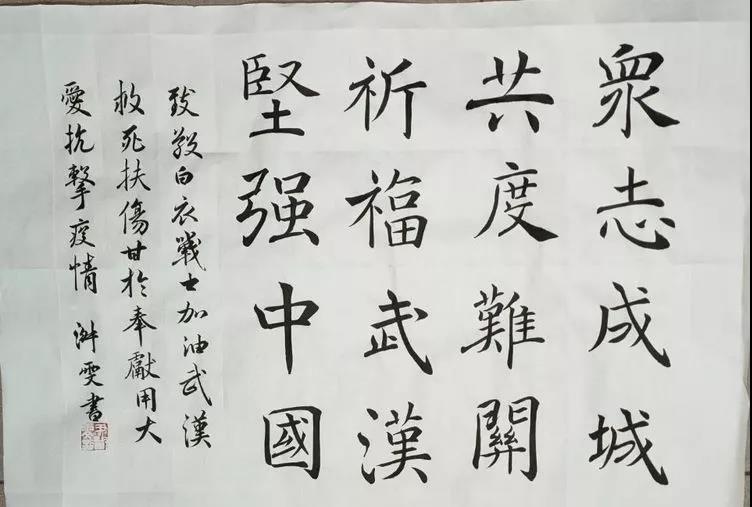 衆志成城
共度難關
祈福武漢
堅强中國
致敬白衣戰士加油武漢
救死扶傷甘於奉獻用大
愛抗擊疫情 雯書